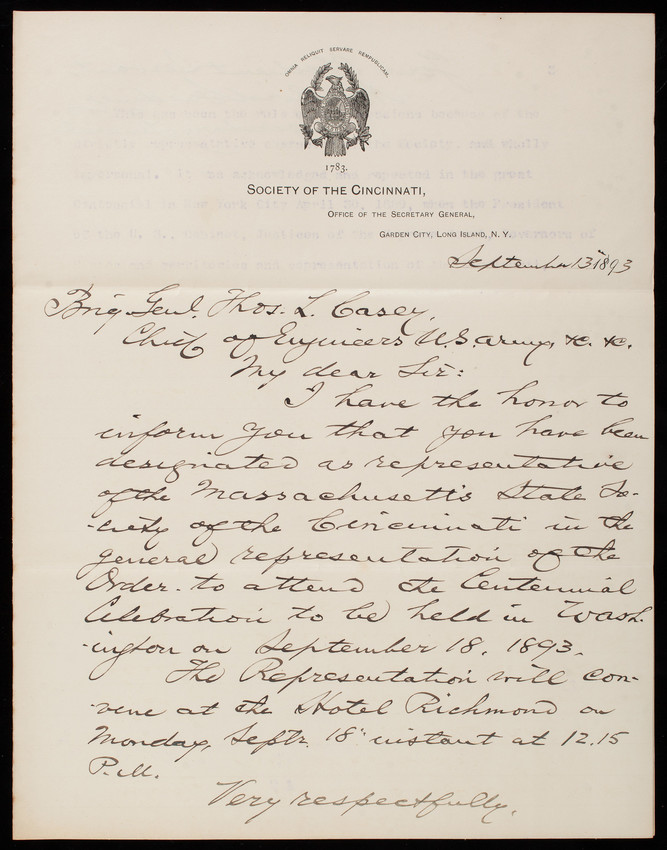 OMNIA RELIQUIT SERVARE REMPUBLICAM.
1783.
SOCIETY OF THE CINCINNATI,
OFFICE OF THE SECRETARY GENERAL,
GARDEN CITY, LONG ISLAND, N. Y.
September 13th 1893
Brig. Genl. Thos. L. Casey,
Chief of Engineers U.S. army, &c. &c.
My dear Sir:
I have the honor to
inform you that you have been
designated as representative
of the Massachusetts State So-
-ciety of the Cincinnati in the
general representation of the
Order to attend the Centennial
Celebration to be held in Wash-
-ington on September 18, 1893.
The Representation will con-
-vene at the Hotel Richmond on
Monday, Septr. 18" instant at 12.15
P.M.
Very respectfully,